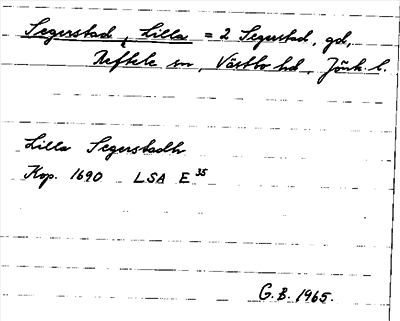 Segerstad, Lilla = 2 Segerstad, gd,
Reftele sn, Västbo hd, Jönk. l.
Lilla Segerstadh
Kop. 1690 LSA E 35
G.B. 1965.